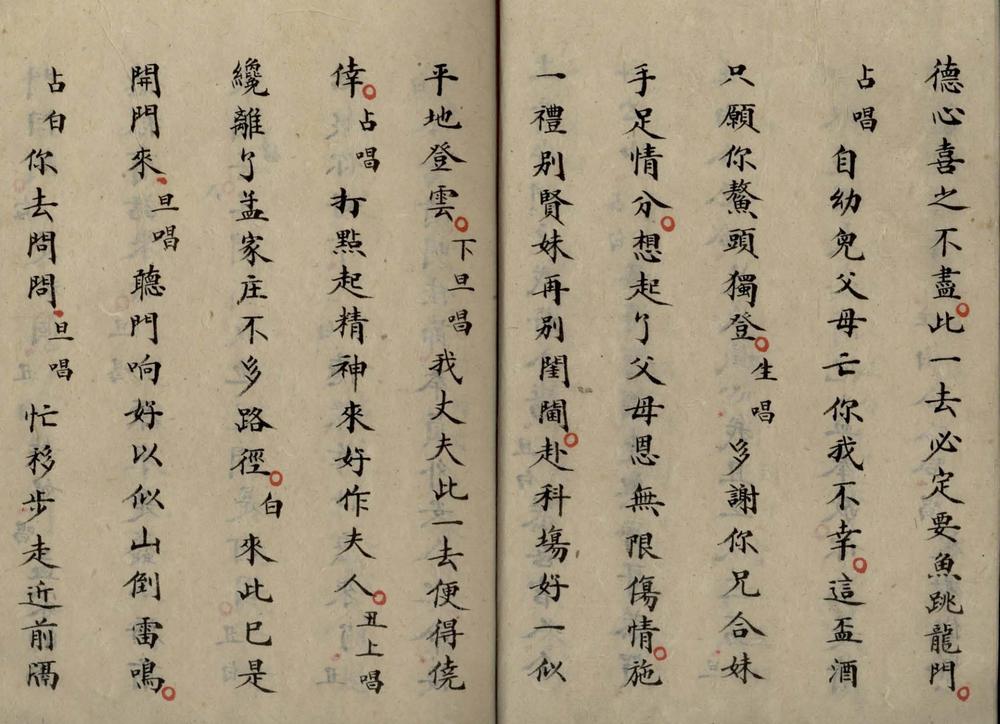 德心喜之不盡此一去必定要魚跳龍門
占唱自幼兒父母亡你我不幸這盃酒
只願你鰲頭獨登生唱多謝你兄合妹
手足情分想起了父母恩無限傷情施
一禮別賢妹再別閨閫赴科塲好一似
平地登雲下旦唱我丈夫此一去便得僥
倖占唱打點起精神來好作夫人丑上唱
纔離了孟家庄不多路徑白來此已是
開門來旦唱聽門响好以似山倒雷鳴
占白你去問問旦唱忙移步走近前隔